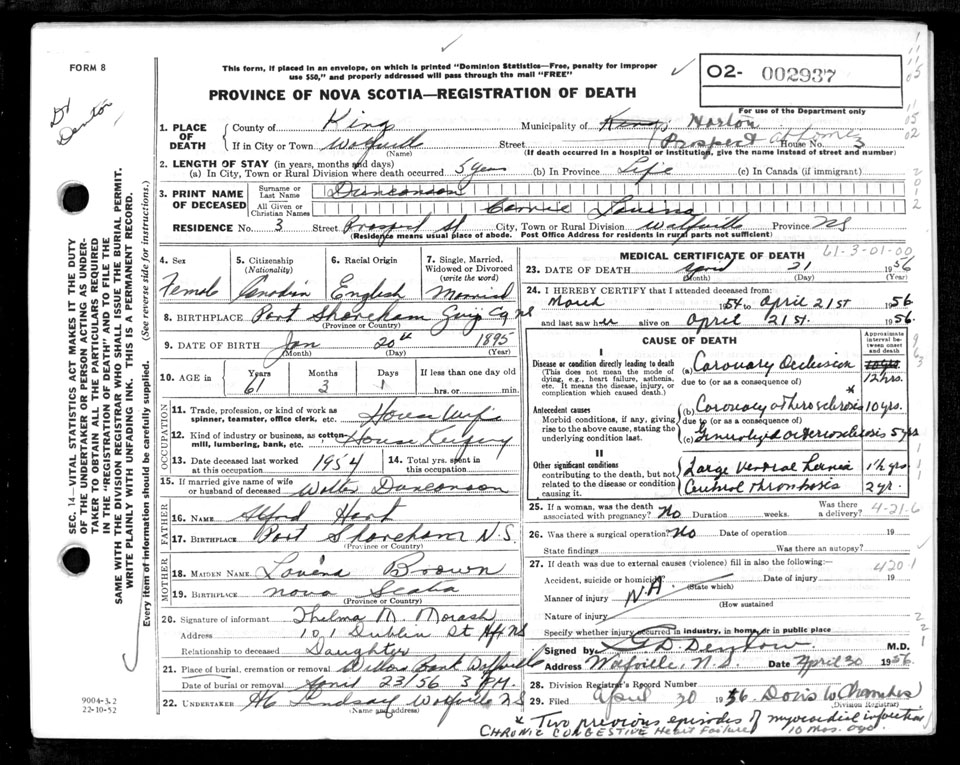 FORM 8
Dr Denton
This form, if placed in an envelope, on which is printed "Dominion Statistics—Free, penalty for improper
use $50," and properly addressed will pass through the mail "FREE"
02- 002937
For use of the Department only
PROVINCE OF NOVA SCOTIA—REGISTRATION OF DEATH
1. PLACE OF DEATH County of Kings Municipality of Kings Horton
If in City or Town Wolfville (Name) Street Prospect House No. 3
(If death occurred in a hospital or institution, give the name instead of street and number)
2. LENGTH OF STAY (in years, months and days)
(a) In City, Town or Rural Division where death occurred 5 years (b) In Province Life (c) In Canada (if immigrant)
3. PRINT NAME OF DECEASED
Surname or Last Name Duncanson
All Given or Christian Names Carrie Lavina
RESIDENCE No. 3 Street Prospect St City, Town or Rural Division Wolfville Province NS
(Residence means usual place of abode. Post Office Address for residents in rural parts not sufficient)
4. Sex Female
5. Citizenship (Nationality) Canadian
6. Racial Origin English
7. Single, Married, Widowed or Divorced (write the word) Married
8. BIRTHPLACE Port Shoreham Guy Co NS
(Province or Country)
9. DATE OF BIRTH Jan 20th 1895
(Month) (Day) (Year)
10. AGE in Years 61 Months 3 Days 1 If less than one day old hrs. or min.
OCCUPATION
11. Trade, profession, or kind of work as spinner, teamster, office clerk, etc. House Wife
12. Kind of industry or business, as cotton-mill, lumbering, bank, etc. House Keeping
13. Date deceased last worked at this occupation 1954
14. Total yrs. spent in this occupation
15. If married give name of wife or husband of deceased Walter Duncanson
FATHER
16. NAME Alfred Hart
17. BIRTHPLACE Port Shoreham N.S.
(Province or Country)
MOTHER
18. MAIDEN NAME Lavena Brown
19. BIRTHPLACE Nova Scotia
(Province or Country)
20. Signature of informant Thelma M. Morash
Address 101 Dublin St Hfx NS
Relationship to deceased Daughter
21. Place of burial, cremation or removal Willow Bank Wolfville
Date of burial or removal April 23/56 3 P.M.
22. UNDERTAKER Lindsay Wolfville NS
(Name and address)
MEDICAL CERTIFICATE OF DEATH 61-3-01-00
23. DATE OF DEATH April 21 1956
(Month) (Day) (Year)
24. I HEREBY CERTIFY that I attended deceased from:
March 1954 to April 21st 1956
and last saw her alive on April 21st. 1956.
CAUSE OF DEATH
Approximate interval between onset and death
I
Disease or condition directly leading to death
(This does not mean the mode of dying, e.g., heart failure, asthenia, etc. It means the disease, injury, or complication which caused death.)
(a) Coronary Occlusion 12 hrs.
due to (or as a consequence of) *
Antecedent causes
Morbid conditions, if any, giving rise to the above cause, stating the underlying condition last.
(b) Coronary atherosclerosis 10 yrs.
due to (or as a consequence of)
(c) Generalized arteriosclerosis 5 yrs
II
Other significant conditions
contributing to the death, but not related to the disease or condition causing it.
Large ventral hernia 1½ yrs.
Cerebral thrombosis 2 yr.
25. If a woman, was the death associated with pregnancy? No Duration weeks. Was there a delivery? 4-21-6
26. Was there a surgical operation? No Date of operation 19
State findings Was there an autopsy?
27. If death was due to external causes (violence) fill in also the following:— 4201
Accident, suicide or homicide? (State which) Date of injury 19
Manner of injury N.A. (How sustained)
Nature of injury
Specify whether injury occurred in industry, in home, or in public place
Signed by G.D. Denton M.D.
Address Wolfville, N.S. Date April 30 1956.
28. Division Registrar's Record Number
29. Filed April 30 1956. Doris W Chambers
(Division Registrar)
* Two previous episodes of myocardial infarction 10 mos. ago.
CHRONIC CONGESTIVE Heart Failure
SEC. 14—VITAL STATISTICS ACT MAKES IT THE DUTY
OF THE UNDERTAKER OR PERSON ACTING AS UNDER-
TAKER TO OBTAIN ALL THE PARTICULARS REQUIRED
IN THE "REGISTRATION OF DEATH" AND TO FILE THE
SAME WITH THE DIVISION REGISTRAR WHO SHALL ISSUE THE BURIAL PERMIT.
WRITE PLAINLY WITH UNFADING INK. THIS IS A PERMANENT RECORD.
Every item of information should be carefully supplied. (See reverse side for instructions.)
9004-3.2
22-10-52